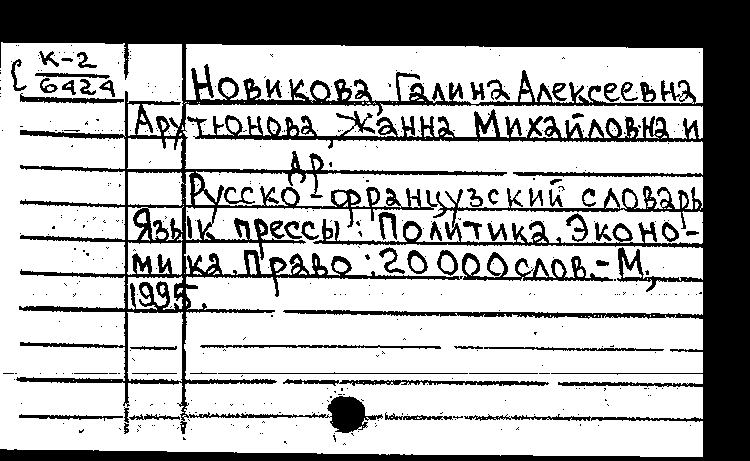 К-2
6424
Новикова, Галина Алексеевна
Арутюнова, Жанна Михайловна и
др.
Русско-французский словарь
Язык прессы: Политика. Эконо-
мика. Право: 20000 слов. - М.,
1995.